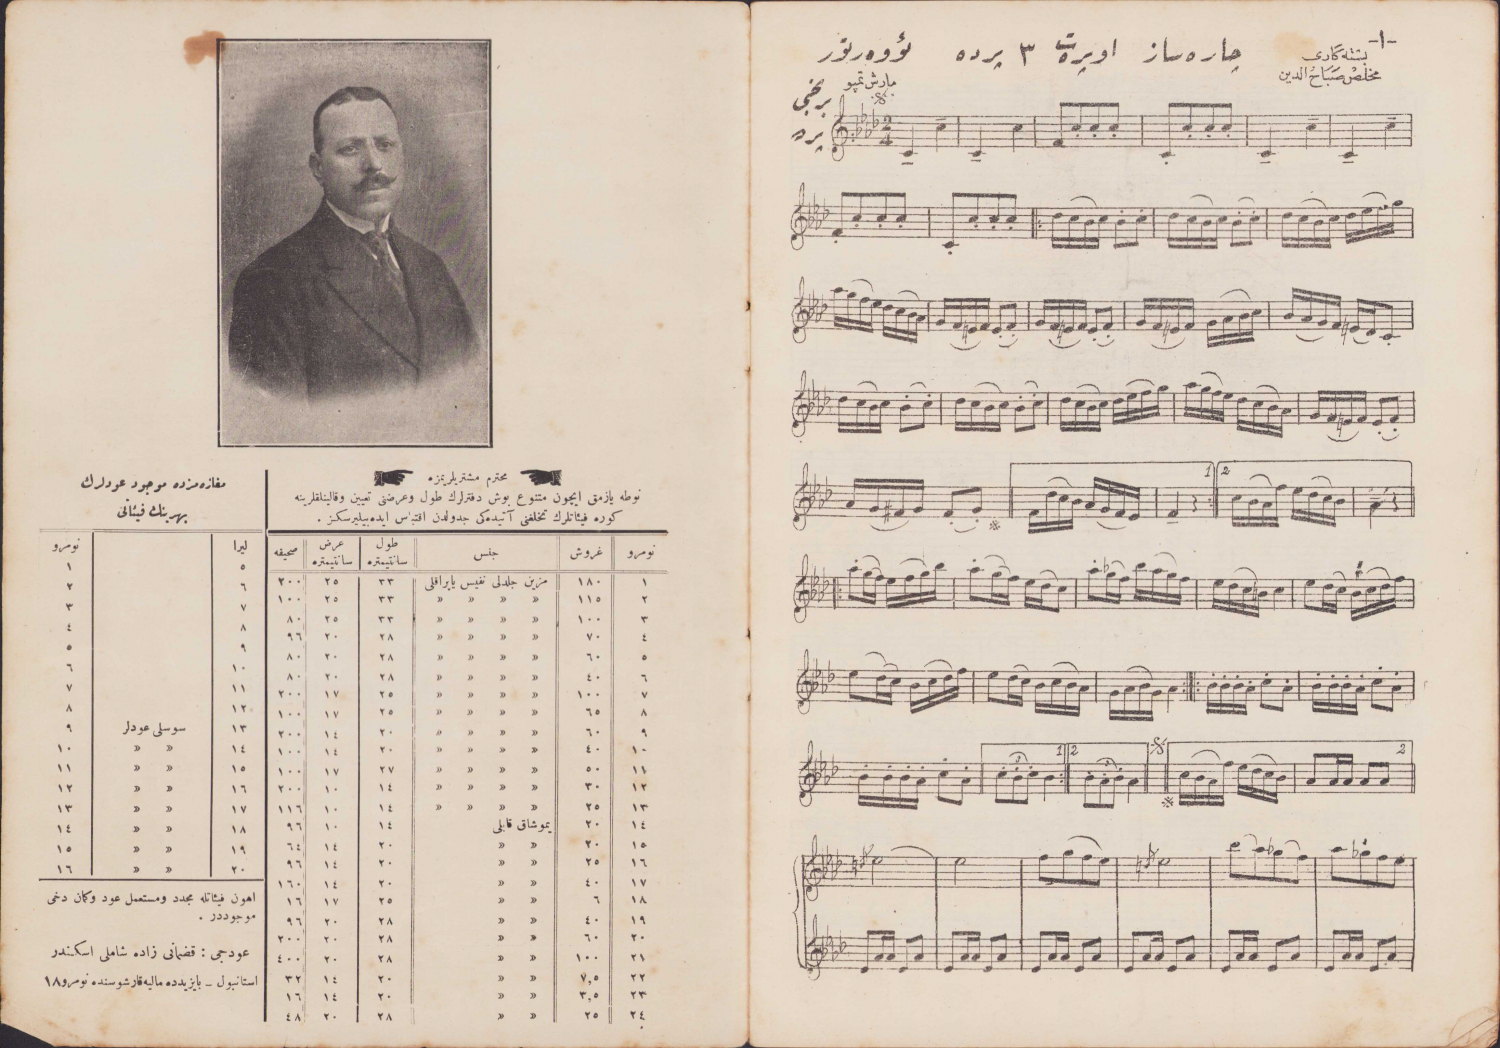 مغازه‌مزده موجود عودلرك
بهرينك فيئاتى
ليرا نومرو
٥ ١
٦ ٢
٧ ٣
٨ ٤
٩ ٥
١٠ ٦
١١ ٧
١٢ ٨
١٣ سوسلى عودلر ٩
١٤ » » ١٠
١٥ » » ١١
١٦ » » ١٢
١٧ » » ١٣
١٨ » » ١٤
١٩ » » ١٥
٢٠ » » ١٦
اهون فيئاتله مجدد ومستعمل عود وكمان دخى
موجوددر .
عودجى : قضمانى زاده شاملى اسكندر
استانبول ـ بايزيدده ماليه قارشوسنده نومرو ١٨
محترم مشتريلريمزه
نوطه يازمق ايچون متنوع بوش دفترلرك طول وعرضنى تعيين وقالينلقلرينه
كوره فيئاتلرك تخلفنى آتيده‌كى جدولدن اقتباس ايده‌بيليرسكز .
نومرو غروش جنس طول سانتيمتره عرض سانتيمتره صحيفه
١ ١٨٠ مزين جلدلى نفيس ياپراقلى ٣٣ ٢٥ ٢٠٠
٢ ١١٥ » » » » ٣٣ ٢٥ ١٠٠
٣ ١٠٠ » » » » ٣٣ ٢٥ ٨٠
٤ ٧٠ » » » » ٢٨ ٢٠ ٩٦
٥ ٦٠ » » » » ٢٨ ٢٠ ٨٠
٦ ٤٠ » » » » ٢٨ ٢٠ ٨٠
٧ ١٠٠ » » » » ٢٥ ١٧ ٢٠٠
٨ ٦٥ » » » » ٢٥ ١٧ ١٠٠
٩ ٦٠ » » » » ٢٠ ١٤ ٢٠٠
١٠ ٤٠ » » » » ٢٠ ١٤ ١٠٠
١١ ٥٠ » » » » ٢٧ ١٧ ١٠٠
١٢ ٣٠ » » » » ١٤ ١٠ ٢٠٠
١٣ ٢٥ » » » » ١٤ ١٠ ١١٦
١٤ ٢٠ يموشاق قابلى ١٤ ١٠ ٩٦
١٥ ٢٠ » » ٢٠ ١٤ ٦٤
١٦ ٢٥ » » ٢٠ ١٤ ٩٦
١٧ ٤٠ » » ٢٠ ١٤ ١٦٠
١٨ ٦ » » ٢٥ ١٧ ١٦
١٩ ٤٠ » » ٢٨ ٢٠ ٩٦
٢٠ ٦٠ » » ٢٨ ٢٠ ٢٠٠
٢١ ١٠٠ » » ٢٨ ٢٠ ٤٠٠
٢٢ ٧,٥ » » ٢٠ ١٤ ٣٢
٢٣ ٣,٥ » » ٢٠ ١٤ ١٦
٢٤ ٢٥ » » ٢٨ ٢٠ ٤٨
-١-
چاره‌ساز اوپره‌ت ٣ پرده ئووه‌رتور
بسته‌كارى
مخلص صباح الدين
مارش تمپو
برنجى
پرده
2
4
1 2
3
1 2
3
2